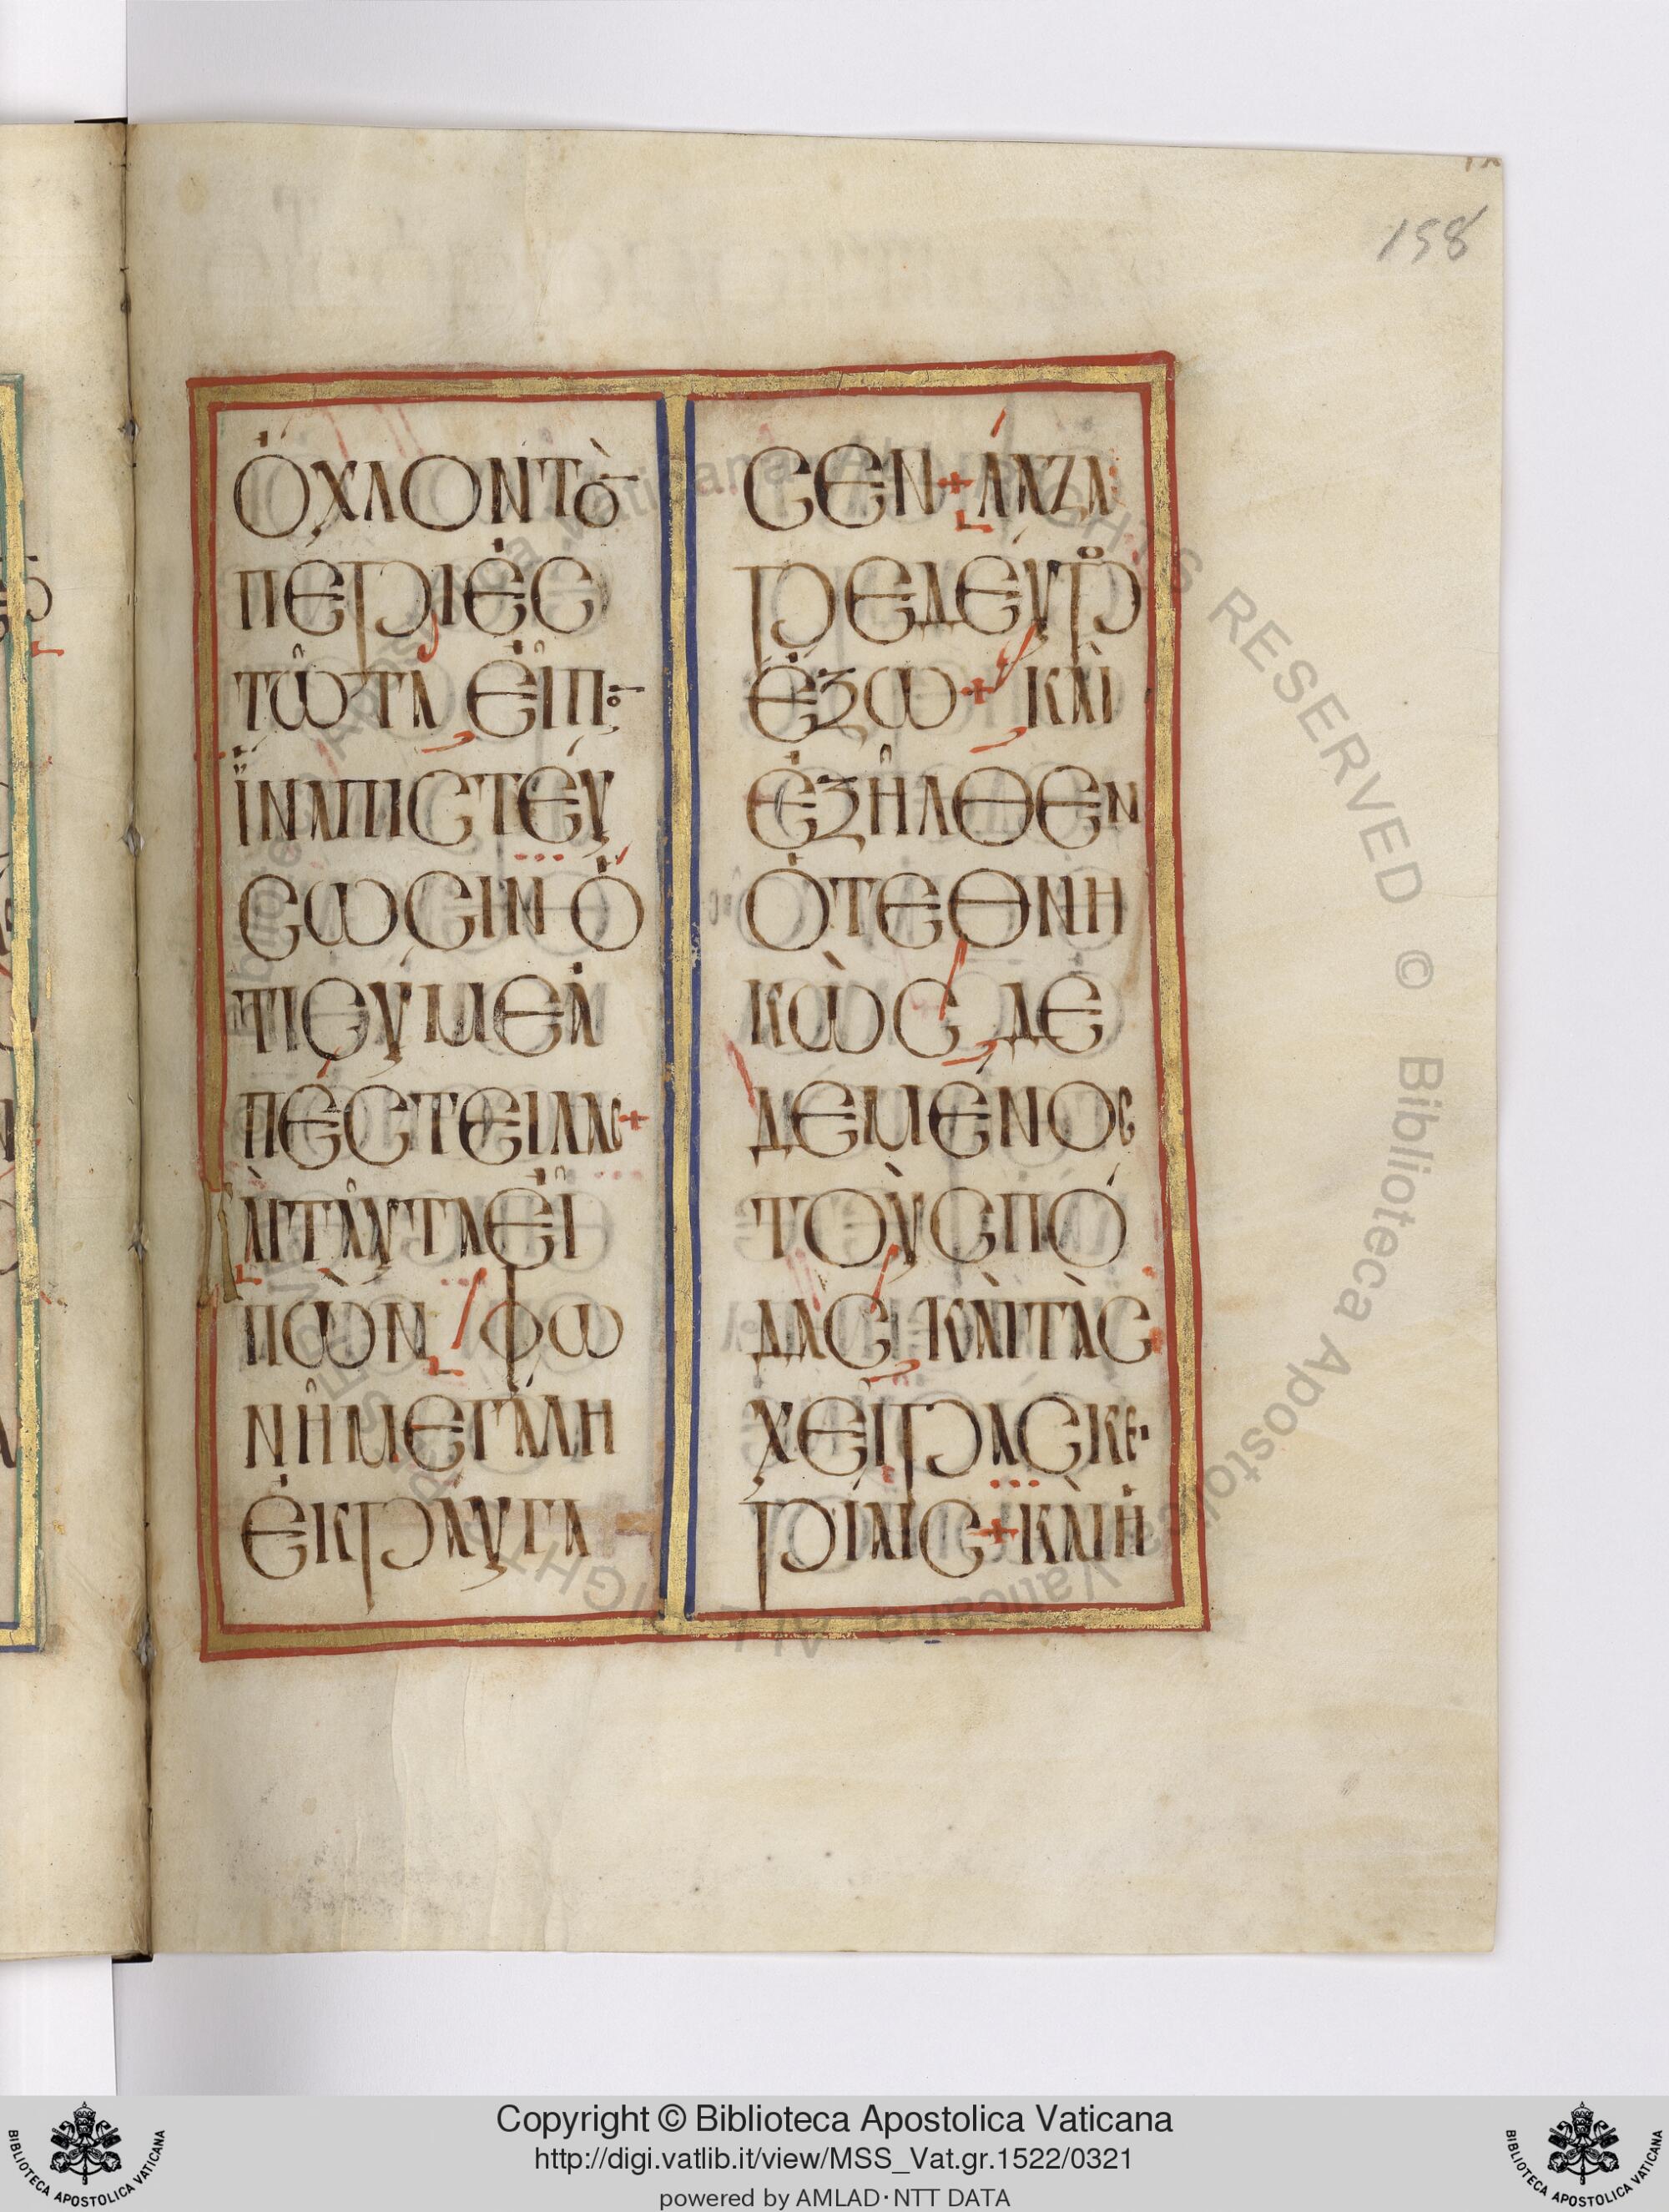 158
ὄχλοντὸ
περιεσ
τῶτα εἶπο
ἵναπιστεύ
σωσιν ὅ
τισύμεἀ
πέστειλας+
Καὶταῦταεἰ
πὼν φω
νῆμεγάλη
ἐκραύγα
σεν+Λάζα
ρεδεῦρο
ἔξω+ καὶ
ἐξῆλθεν
ὁτεθνη
κὼς δε
δεμενος
τοὺσπό
δας καὶτὰς
χεῖρασκει
ρίαις+καὶἡ
Copyright © Biblioteca Apostolica Vaticana
http://digi.vatlib.it/view/MSS_Vat.gr.1522/0321
powered by AMLAD·NTT DATA
BIBLIOTECA APOSTOLICA VATICANA
BIBLIOTECA APOSTOLICA VATICANA
Biblioteca Apostolica Vaticana ALL RIGHTS RESERVED ©